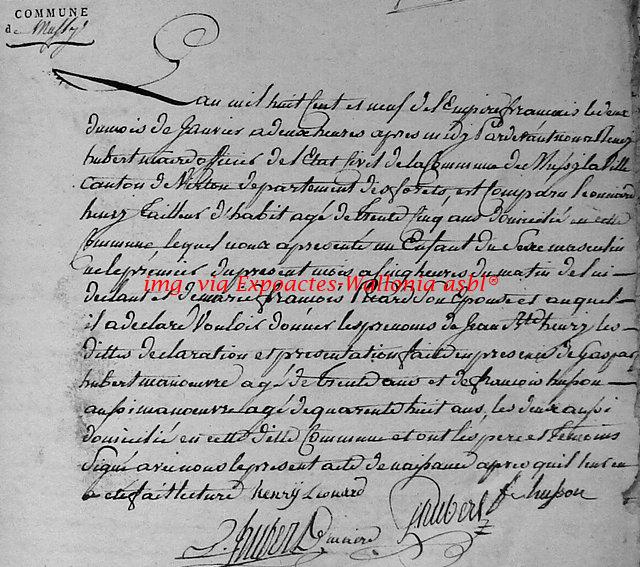 COMMUNE
de Mussy
L'an mil huit Cent et neuf de l'Empire français le deux
du mois de Janvier a deux heures apres midy Pardevant nous
hubert maire officier de l'Etat Civil de la Commune de Mussy la ville
Canton de Virton departement des forets, est Comparu leonnard
henry Tailleur d'habit agé de trente Cinq ans domicilié en cette
Commune lequel nous a presenté un Enfant du Sexe masculin
né le prémier du present mois a Cinq heures du matin de lui
img via Expoactes-Wallonia asbl®
declarant et de marie françois son Epouse et auquel
il a declaré Vouloir donner les prenoms de Jean Bte henry les
dittes declaration et presentation faite en presence de Gaspar
hubert manoeuvre agé de trente ans et de françois husson
aussi manoeuvre agé de quarente huit ans, les deux aussi
domicilié en cette ditte Commune et ont les pere et Temoins
Signé avec nous le present acte de naissance apres qu'il leur en
a été fait lecture henry Leonard
f husson
g hubert
hubert